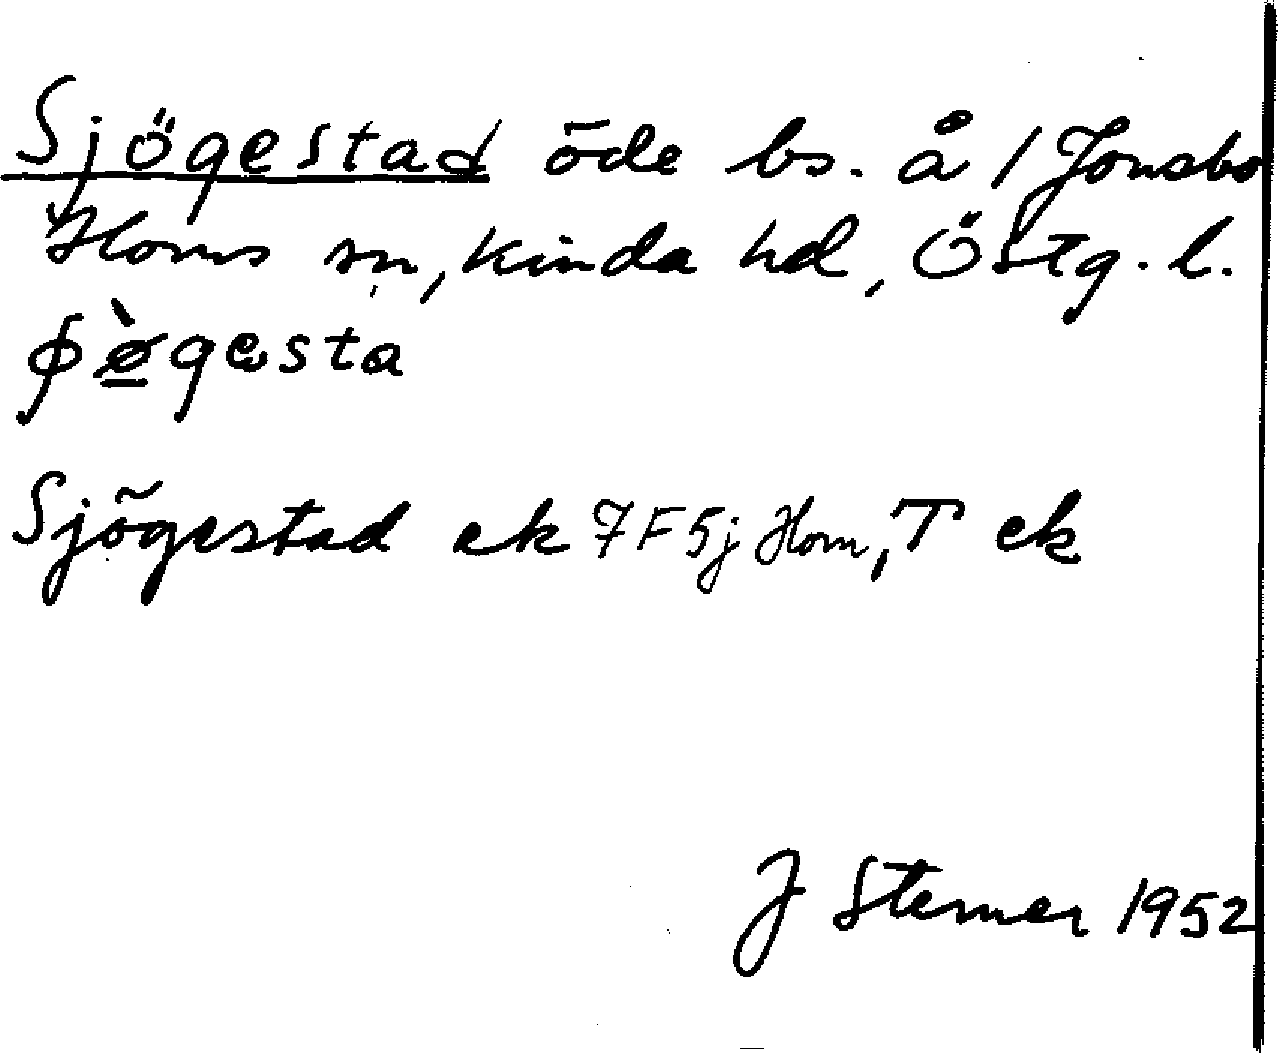 Sjögestad öde bs. å 1 Jonsbo
Horns sn, Kinda hd, Östg. l.
ʃø̀gesta
Sjögestad ek 7F5j Horn, T ek
J Sterner 1952